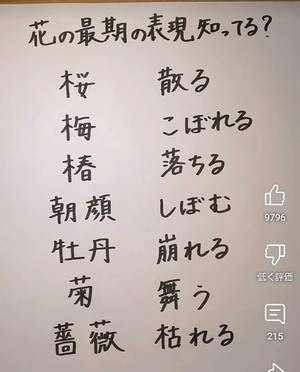 花の最期の表現知ってる?
桜 散る
梅 こぼれる
椿 落ちる
朝顔 しぼむ
牡丹 崩れる
菊 舞う
薔薇 枯れる
9796
低く評価
215